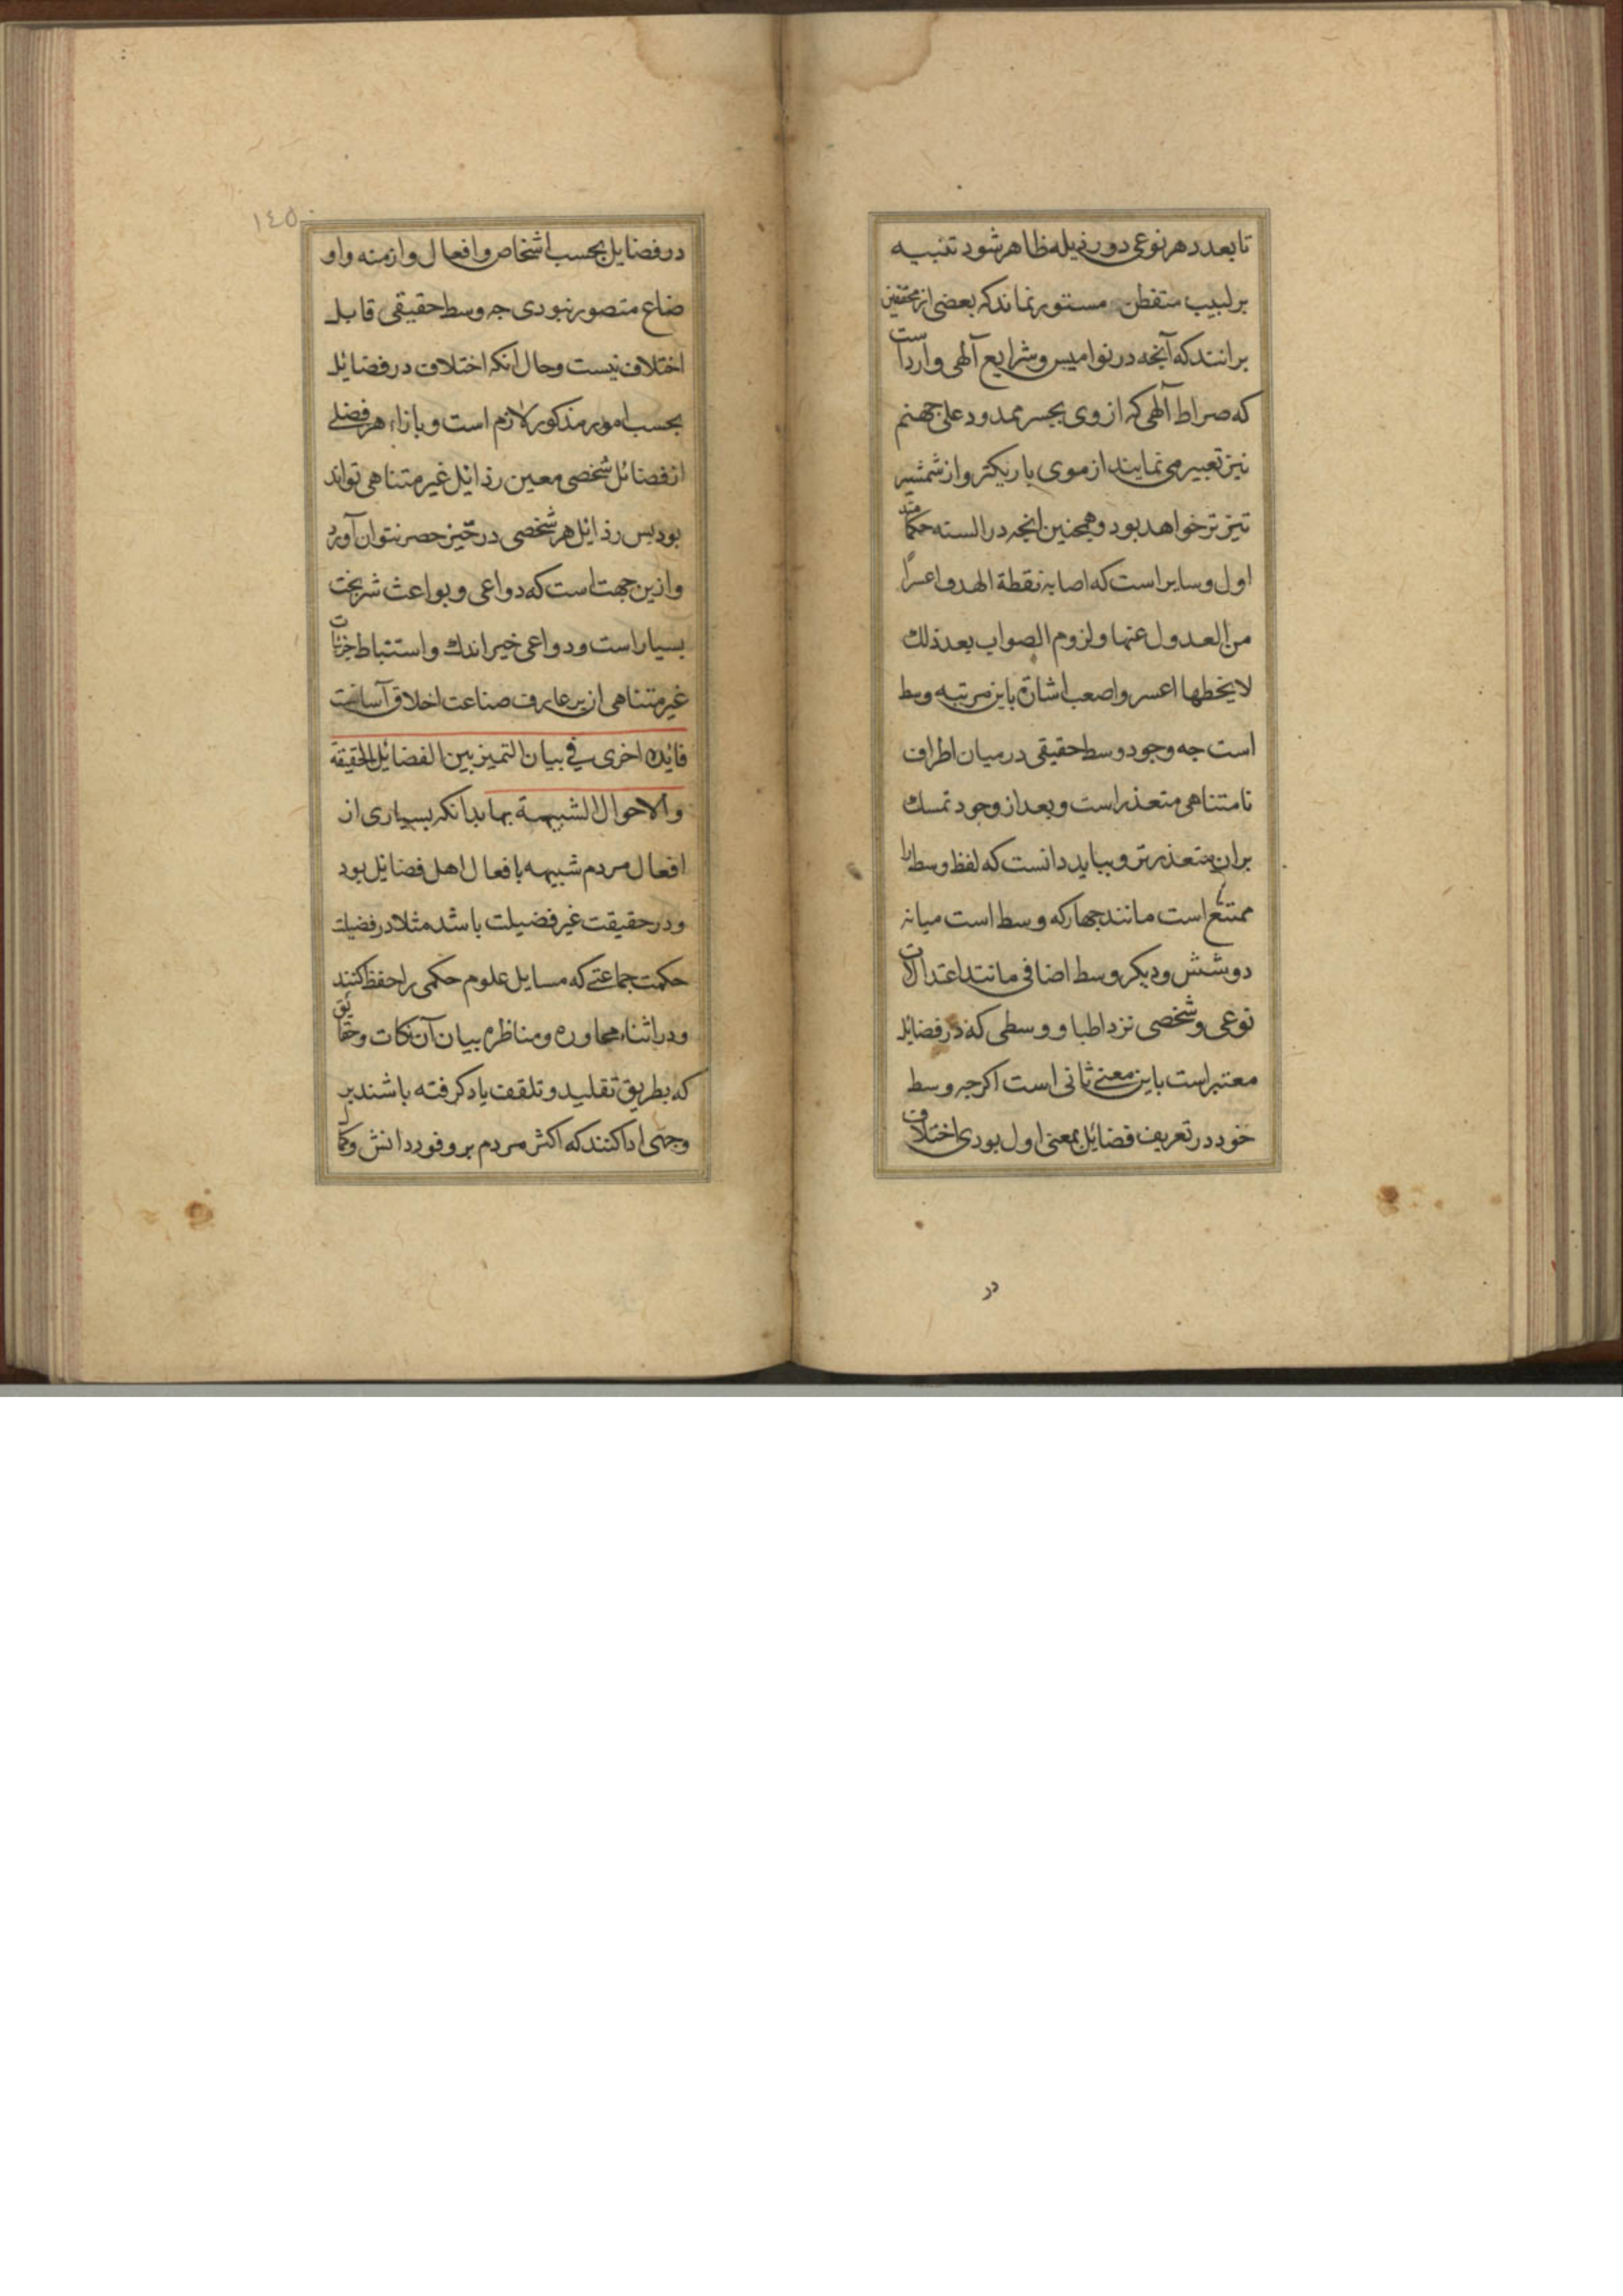 تا بعدد هر نوعی دو رذیله ظاهر شود تنبیه
بر لبیب متفطن مستور نماند که بعضی از محققین
برانند که آنچه در نوامیس و شرایع آلهی وارد است
که صراط آلهی که از وی بجسر ممدود علی جهنم
نیز تعبیر می نمایند از موی باریکتر و از شمشیر
تیز تر خواهد بود و همچنین انچه در السنه حکما متد
اول و سایر است که اصابه نقطة الهدف اعسر
من العدول عنها و لزوم الصواب بعد ذلك
لا یخطها اعسر و اصعب اشاره باین مرتبه وسط
است جه وجود وسط حقیقی در میان اطراف
نامتناهی متعذر است و بعد از وجود تمسك
بران متعذر تر و بباید دانست که لفظ وسط را
است مانند جهار که وسط است میانه
دو و شش و دیکر وسط اضافی مانند اعتدالات
نوعی و شخصی نزد اطبا و وسطی که در فضایل
معتبر است باین معنی ثانی است اکرجه وسط
خود در تعریف فضایل بمعنی اول بودی اختلاف
در
١٤٥
در فضایل بحسب اشخاص و افعال و ازمنه و او
ضاع متصور نبودی جه وسط حقیقی قابل
اختلاف نیست و حال انکه اختلاف در فضایل
بحسب امور مذکور لازم است و بازاء هر فضلے
از فضائل شخصی معین رذائل غیر متناهی تواند
بود بس رذائل هر شخصی در حیز حصر نتوان آورد
و ازین جهت است که دواعی و بواعث شر بخت
بسیار است و دواعی خیر اندك و استنباط جزئیات
غیر متناهی از بر عارف صناعت اخلاق آسانست
فایده اخری في بیان التمیز بین الفضائل الحقیقة
و الاحوال الشبیهة بها بدانکه بسیاری از
افعال مردم شبیه با فعال اهل فضایل بود
و در حقیقت غیر فضیلت باشد مثلا در فضیلت
حکمت جماعتے که مسایل علوم حکمی را حفظ کنند
و در اثناء محاوره و مناظره بیان آن نکات و حقایق
که بطریق تقلید و تلقف یاد کرفته باشند بر
وجهی ادا کنند که اکثر مردم بر وفور دانش و کمال